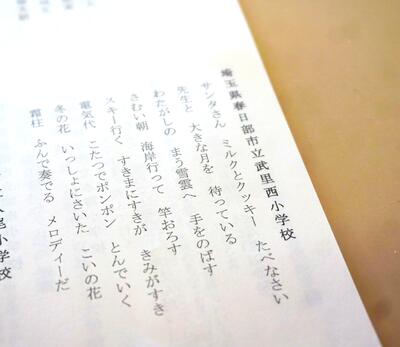 埼玉県春日部市立武里西小学校
サンタさん ミルクとクッキー たべなさい
先生と 大きな月を 待っている
わたがしの まう雪雲へ 手をのばす
さむい朝 海岸行って 竿おろす
スキー行く すきまにすきが きみがすき
電気代 こたつでポンポン とんでいく
冬の花 いっしょにさいた こいの花
霜柱 ふんで奏でる メロディーだ
尾小学校